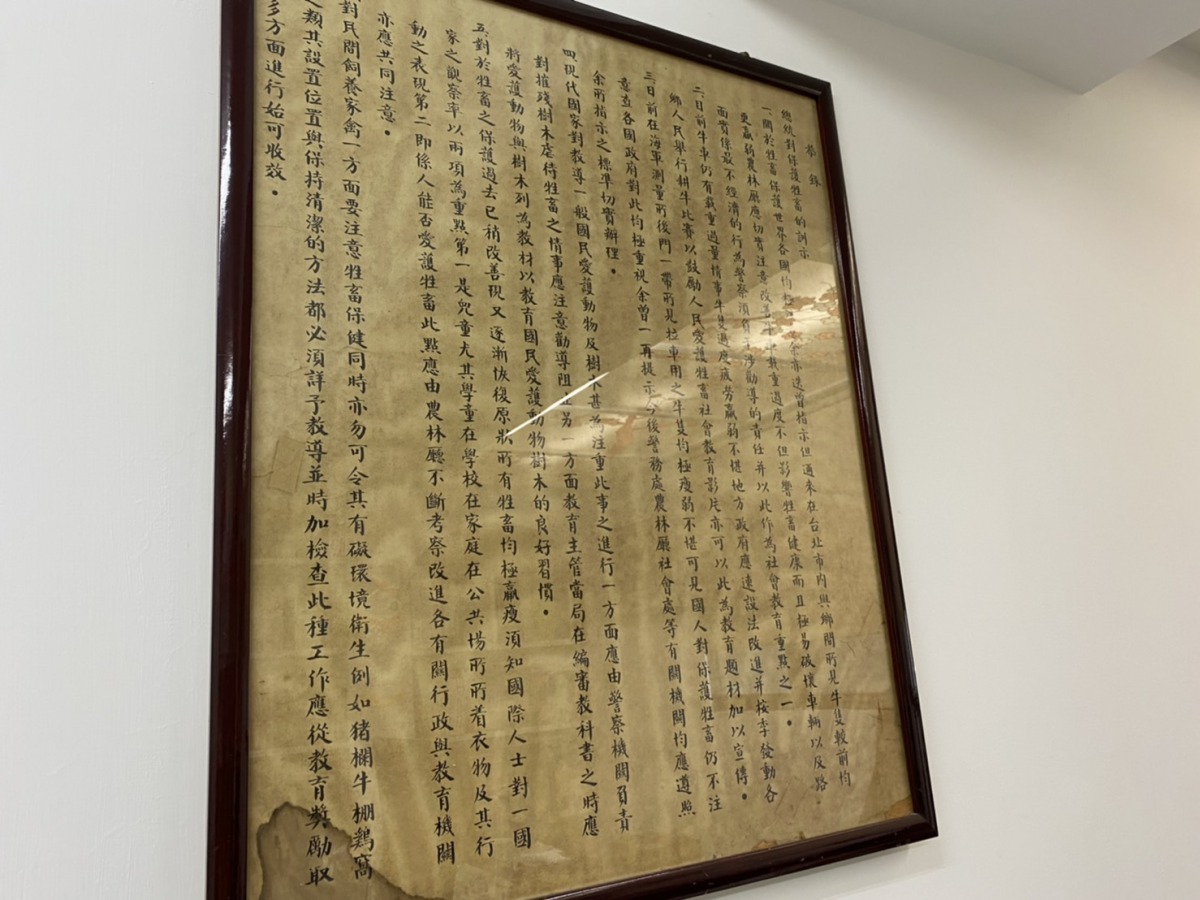 恭錄
總統對保護牲畜的訓示
一、關於牲畜保護世界各國均 余亦迭曾指示但邇來在台北市內與鄉間所見牛隻較前均
更羸弱農林廳應切實注意改善 載重過度不但影響牲畜健康而且極易破壞車輛以及路
面實係最不經濟的行為警察須負干涉勸導的責任并以此作為社會教育重點之一。
二、日前牛車仍有載重過量情事牛隻過度疲勞羸弱不堪地方政府應速設法改進并按季發動各
鄉人民舉行耕牛比賽以鼓勵人民愛護牲畜社會教育影片亦可以此為教育題材加以宣傳。
三、日前在海軍測量所後門一帶所見拉車用之牛隻均極瘦弱不堪可見國人對保護牲畜仍不注
意查各國政府對此均極重視余曾一再提示今後警務處農林廳社會處等有關機關均應遵照
余所指示之標準切實辦理。
四、現代國家對教導一般國民愛護動物及樹木甚為注重此事之進行一方面應由警察機關負責
對摧殘樹木虐待牲畜之情事應注意勸導阻止另一方面教育主管當局在編審教科書之時應
將愛護動物與樹木列為教材以教育國民愛護動物樹木的良好習慣。
五、對於牲畜之保護過去已稍改善現又逐漸恢復原狀所有牲畜均極羸瘦須知國際人士對一國
家之觀察率以兩項為重點第一是兒童尤其學童在學校在家庭在公共場所所着衣物及其行
動之表現第二即係人能否愛護牲畜此點應由農林廳不斷考察改進各有關行政與教育機關
亦應共同注意。
對民間飼養家禽一方面要注意牲畜保健同時亦勿可令其有礙環境衛生例如豬欄牛棚鷄窩
類其設置位置與保持清潔的方法都必須詳予教導並時加檢查此種工作應從教育獎勵取
多方面進行始可收效。